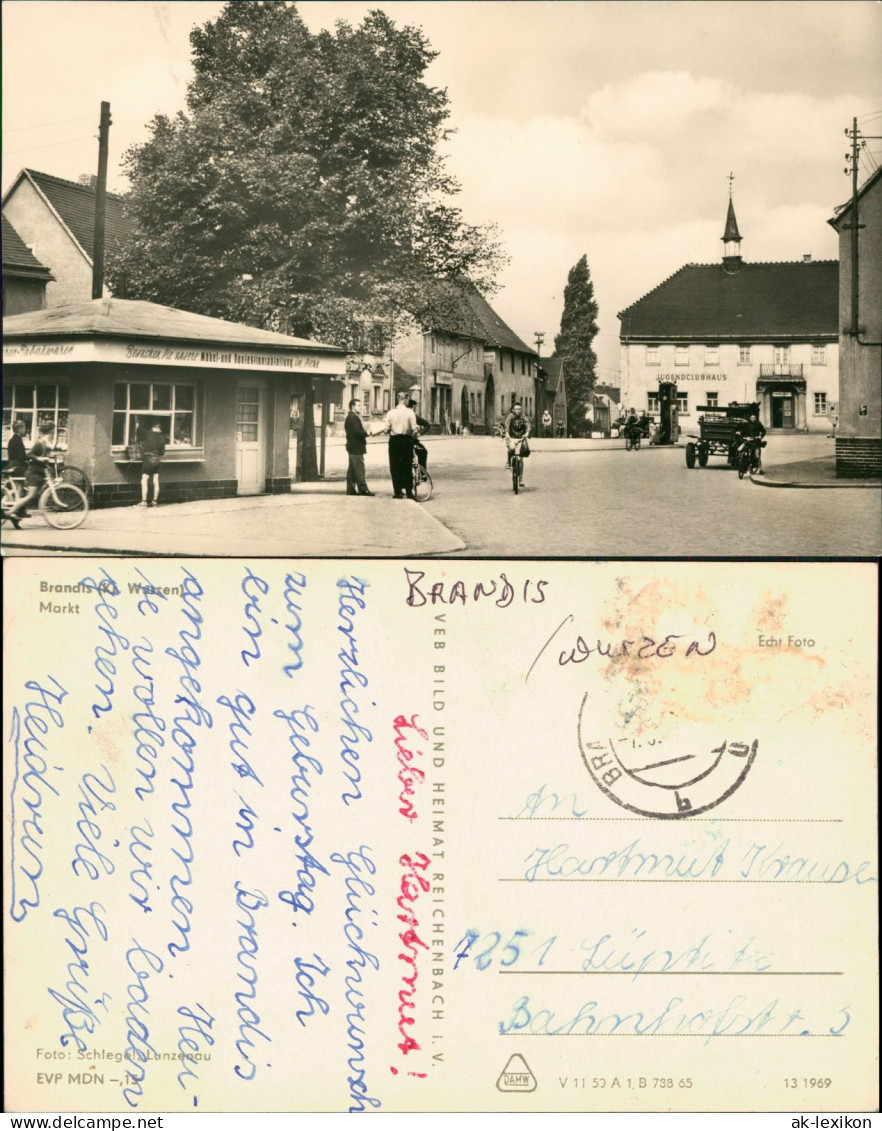 Möbel- und Konfektionsabteilung im
JUGENDCLUBHAUS
Brandis (Kr. Wurzen)
Markt
BRANDIS
WURZEN
Echt Foto
Lieber Hartmut!
Herzlichen Glückwunsch
zum Geburtstag. Ich
bin gut in Brandis
angekommen. Heu-
te wollen wir baden
gehen. Viele Grüße
Heidrun
VEB BILD UND HEIMAT REICHENBACH i. V.
BRA
An
Hartmut Krause
7251 Lüptitz
Bahnhofstr. 3
Foto: Schlegel, Lunzenau
EVP MDN –,15
DAMW
V 11 50 A 1 B 738 65
13 1969
ak-lexikon
www.delcampe.net